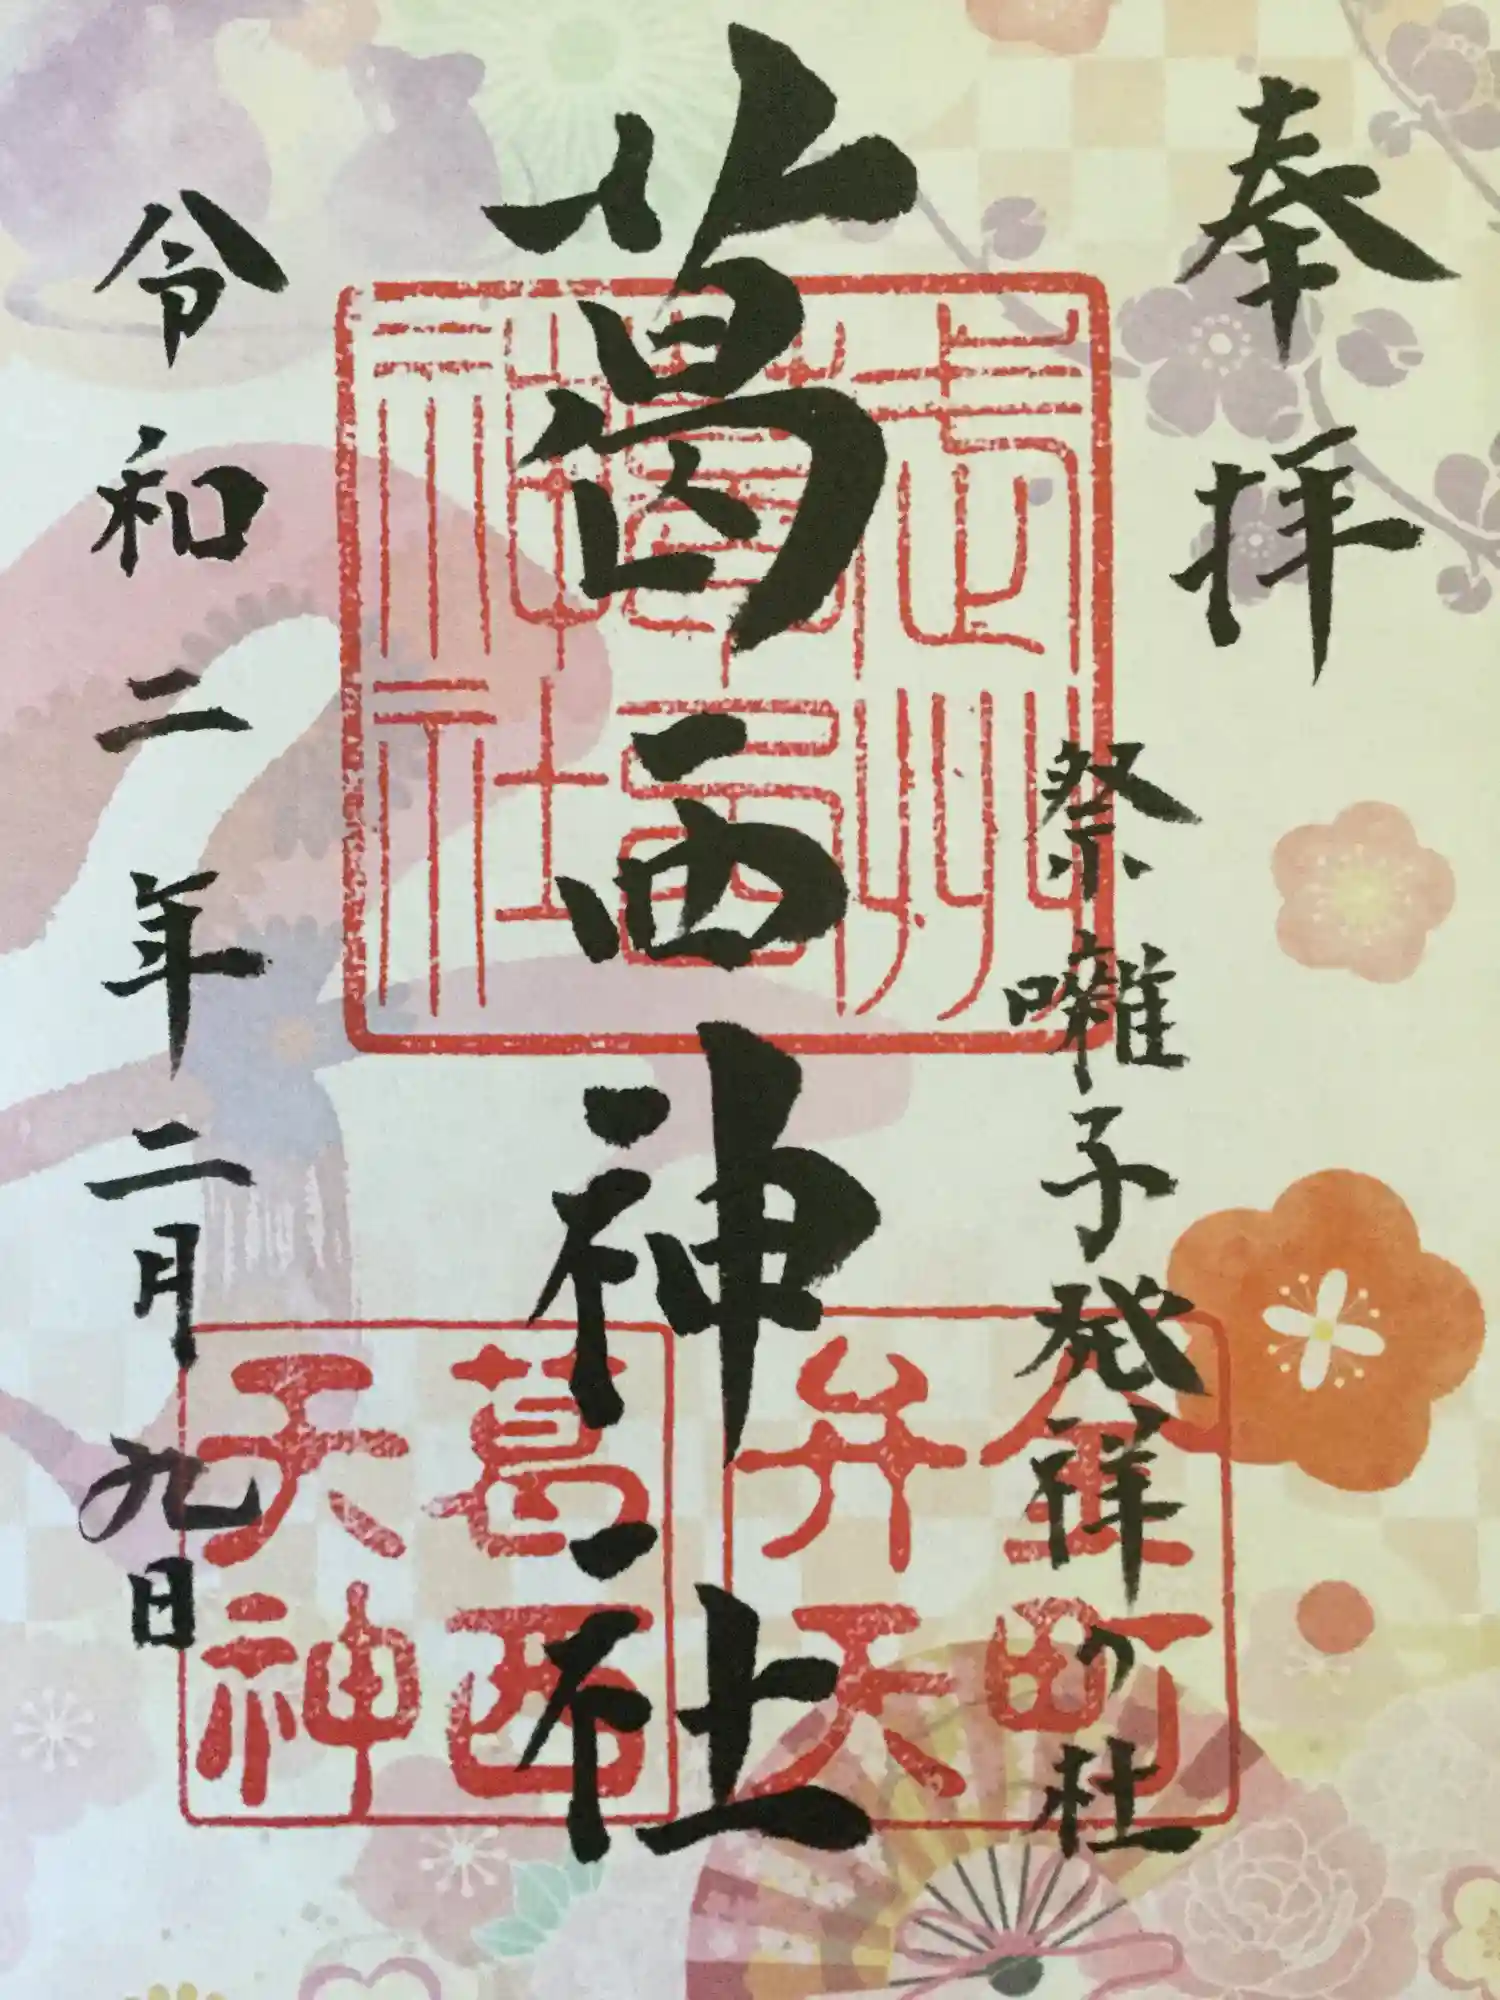 奉拝
祭囃子発祥の杜
葛西神社
令和二年二月九日
武州
葛西
神社
金町
弁天
葛西
天神